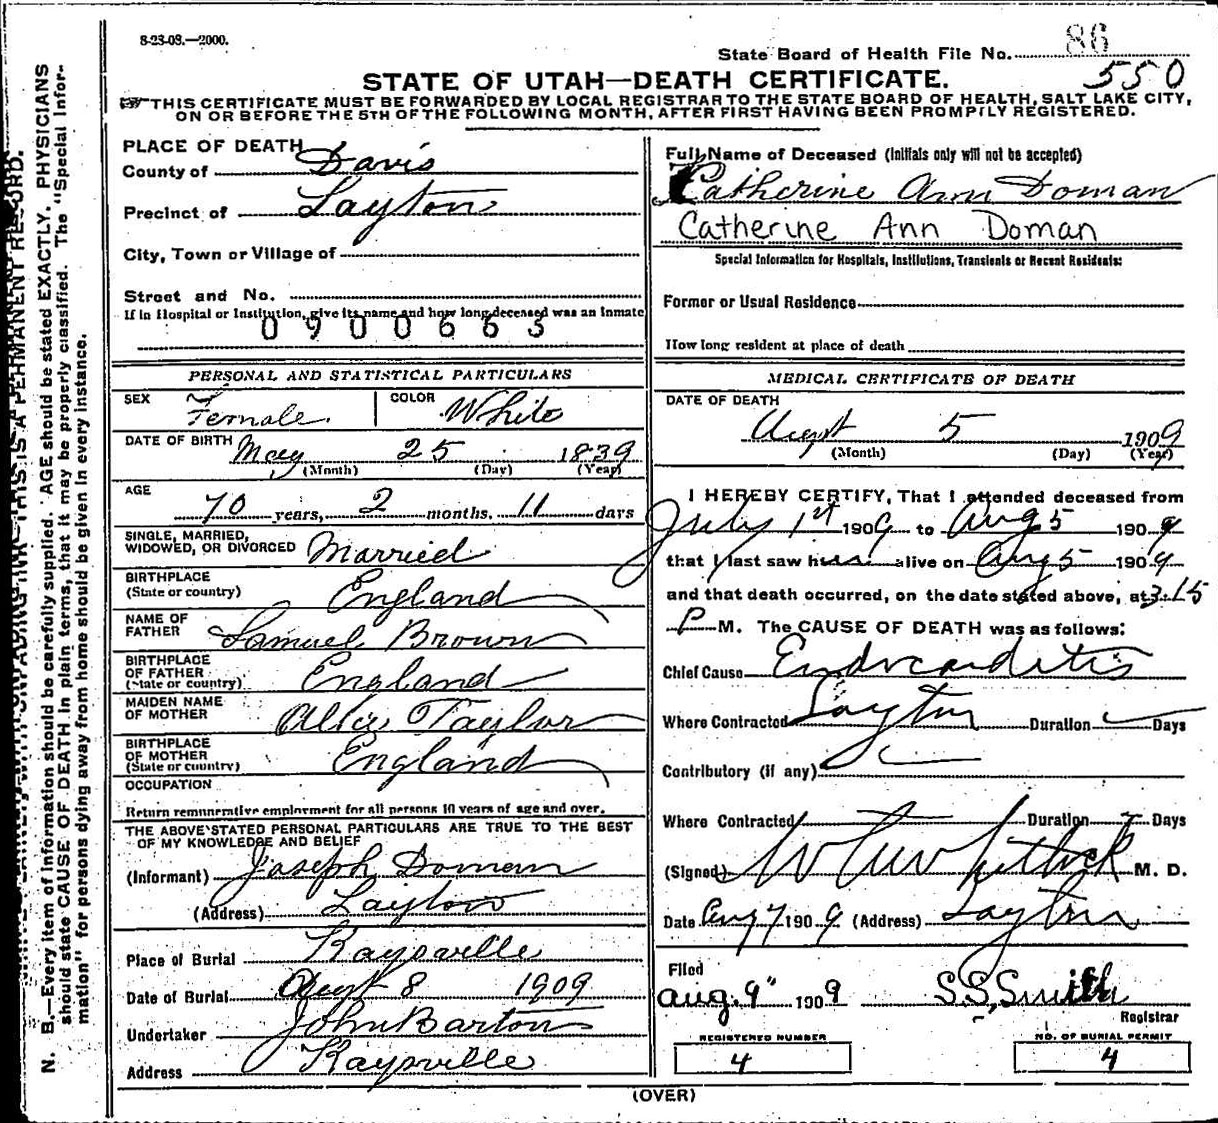 8-23-08.—2000.
State Board of Health File No. 86
550
STATE OF UTAH—DEATH CERTIFICATE.
THIS CERTIFICATE MUST BE FORWARDED BY LOCAL REGISTRAR TO THE STATE BOARD OF HEALTH, SALT LAKE CITY,
ON OR BEFORE THE 5TH OF THE FOLLOWING MONTH, AFTER FIRST HAVING BEEN PROMPTLY REGISTERED.
PLACE OF DEATH
County of Davis
Precinct of Layton
City, Town or Village of
Street and No.
If in Hospital or Institution, give its name and how long deceased was an Inmate
0900663
PERSONAL AND STATISTICAL PARTICULARS
SEX Female COLOR White
DATE OF BIRTH May 25 1839
(Month) (Day) (Year)
AGE
70 years, 2 months. 11 days
SINGLE, MARRIED,
WIDOWED, OR DIVORCED Married
BIRTHPLACE
(State or country) England
NAME OF
FATHER Samuel Brown
BIRTHPLACE
OF FATHER
(State or country) England
MAIDEN NAME
OF MOTHER Alice Taylor
BIRTHPLACE
OF MOTHER
(State or country) England
OCCUPATION
Return remunerative employment for all persons 10 years of age and over.
THE ABOVE STATED PERSONAL PARTICULARS ARE TRUE TO THE BEST
OF MY KNOWLEDGE AND BELIEF
(Informant) Joseph Doman
(Address) Layton
Place of Burial Kaysville
Date of Burial Augt 8 1909
Undertaker John Barton
Address Kaysville
Full Name of Deceased (Initials only will not be accepted)
Catherine Ann Doman
Catherine Ann Doman
Special Information for Hospitals, Institutions, Transients or Recent Residents:
Former or Usual Residence
How long resident at place of death
MEDICAL CERTIFICATE OF DEATH
DATE OF DEATH
Augt 5 1909
(Month) (Day) (Year)
I HEREBY CERTIFY, That I attended deceased from
July 1st 1909 to Aug 5 1909
that I last saw her alive on Aug 5 1909
and that death occurred, on the date stated above, at 3.15
P M. The CAUSE OF DEATH was as follows:
Chief Cause Endocarditis
Where Contracted Layton Duration Days
Contributory (if any)
Where Contracted Duration Days
(Signed) M. D.
Date Aug 7 1909 (Address) Layton
Filed
Aug. 9" 1909 S.S. Smith
Registrar
REGISTERED NUMBER
4
NO. OF BURIAL PERMIT
4
(OVER)
N. B.—Every item of information should be carefully supplied. AGE should be stated EXACTLY. PHYSICIANS
should state CAUSE OF DEATH in plain terms, that it may be properly classified. The "Special Infor-
mation" for persons dying away from home should be given in every instance.
THIS IS A PERMANENT RECORD.